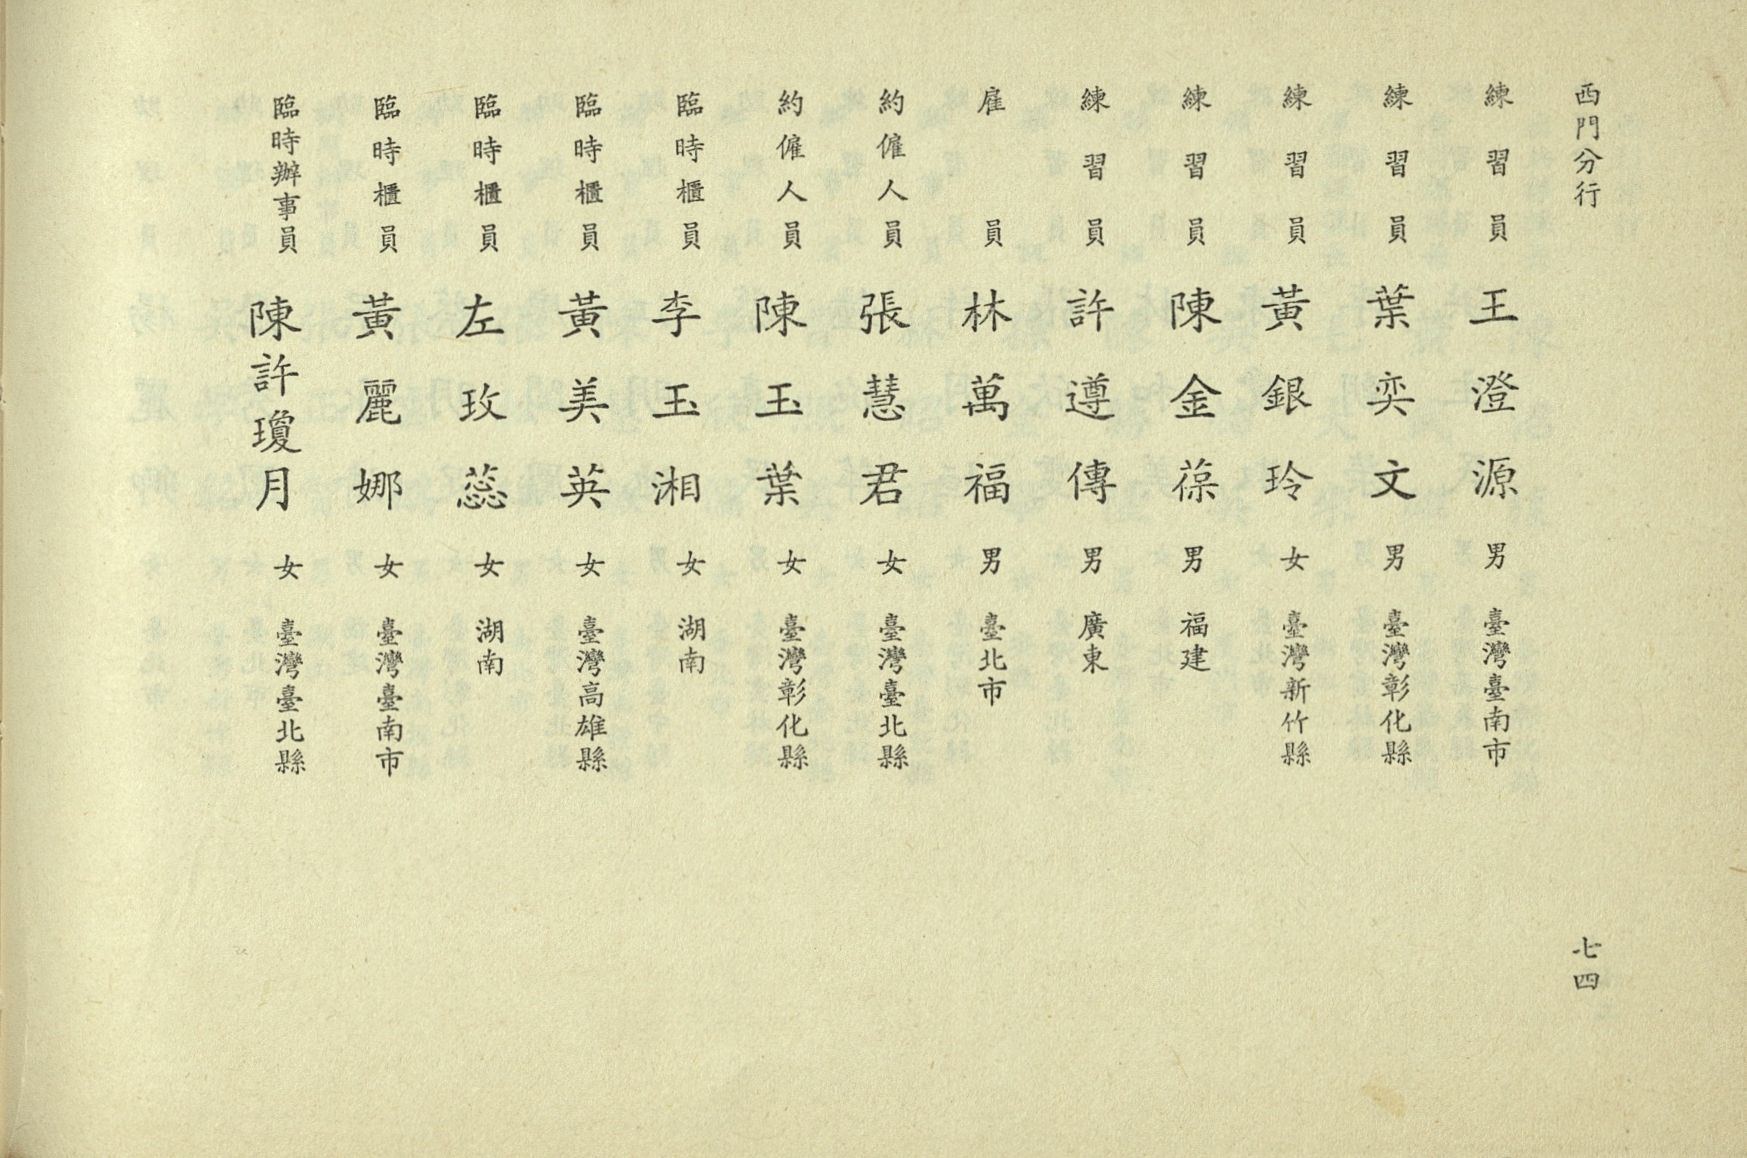 西門分行
七四
練習員 王澄源 男 臺灣臺南市
練習員 葉奕文 男 臺灣彰化縣
練習員 黃銀玲 女 臺灣新竹縣
練習員 陳金葆 男 福建
練習員 許遵傳 男 廣東
雇員 林萬福 男 臺北市
約僱人員 張慧君 女 臺灣臺北縣
約僱人員 陳玉葉 女 臺灣彰化縣
臨時櫃員 李玉湘 女 湖南
臨時櫃員 黃美英 女 臺灣高雄縣
臨時櫃員 左玫蕊 女 湖南
臨時櫃員 黃麗娜 女 臺灣臺南市
臨時辦事員 陳許瓊月 女 臺灣臺北縣